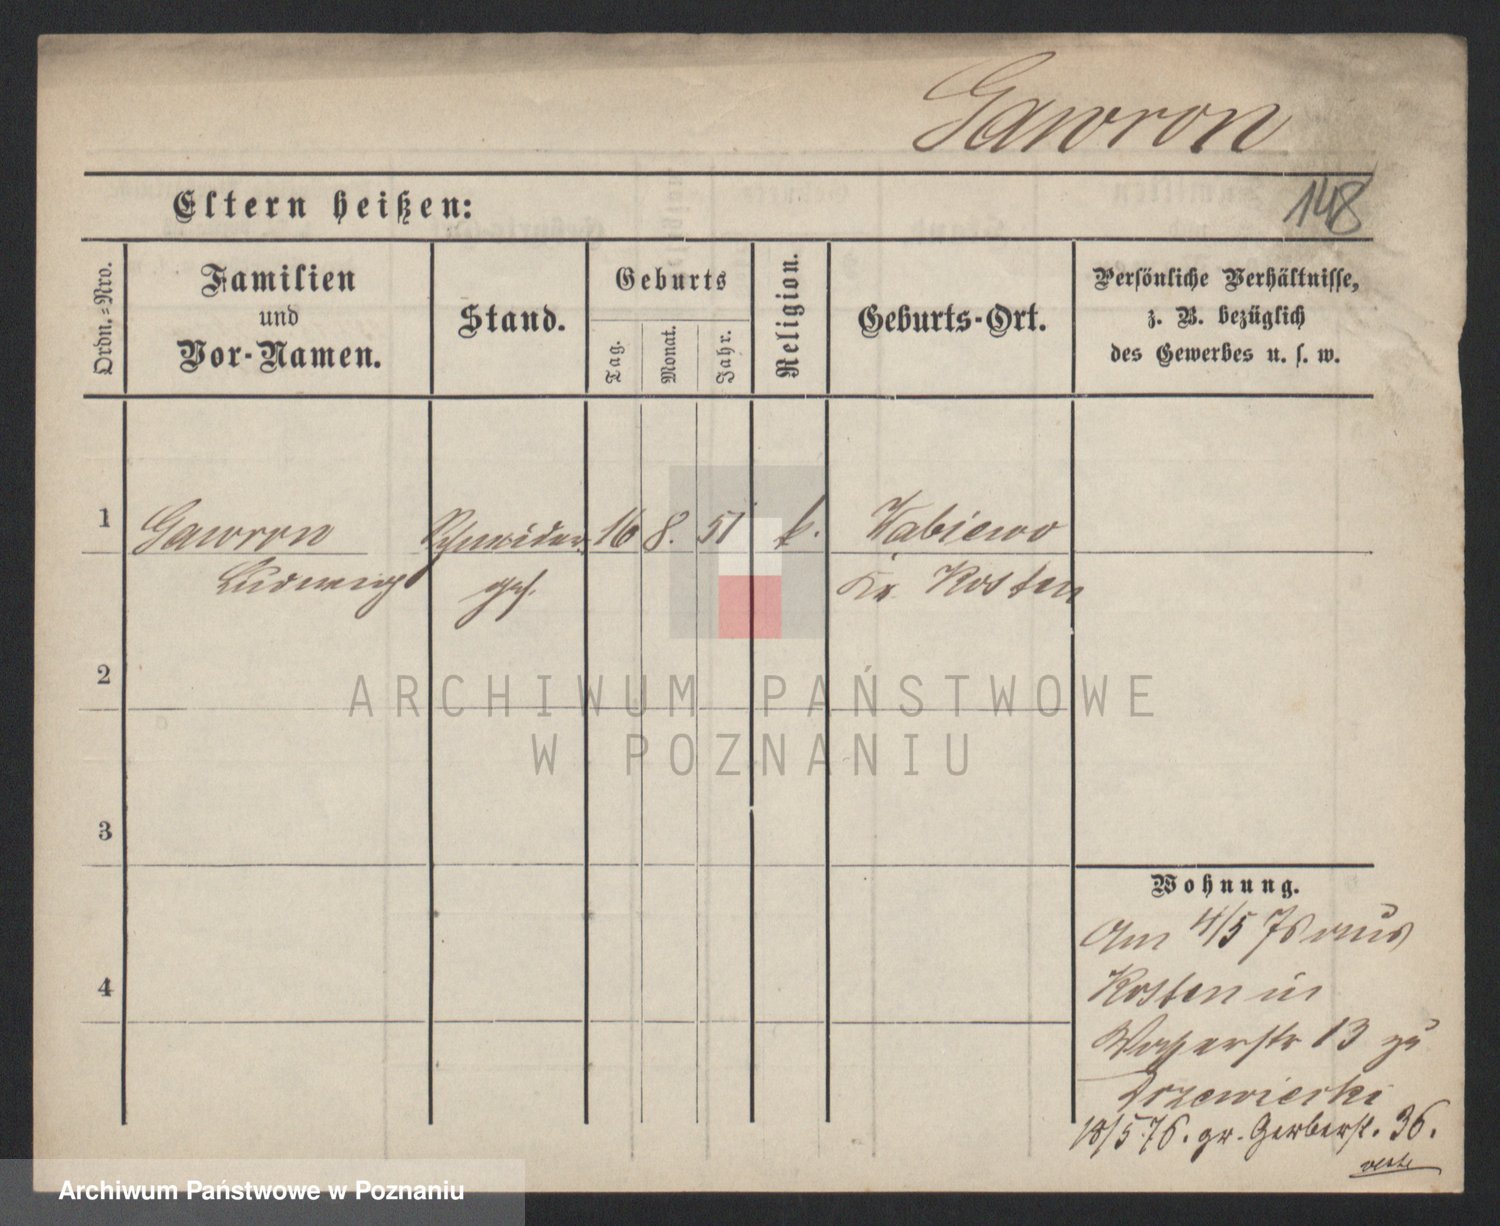 Gawron
148
Eltern heißen:
Ordn.=Nro.
Familien
und
Vor-Namen.
Stand.
Geburts
Tag.
Monat.
Jahr.
Religion.
Geburts-Ort.
Persönliche Verhältnisse,
z. B. bezüglich
des Gewerbes u. s. w.
1
Gawron
Ludwig
Schneider
ges.
16
8.
51
k.
Wabiewo
Kr. Kosten
2
3
4
Wohnung.
Am 4/5 76 aus
Kosten in
13 zu
Drzewiecki
18/5 76. gr. Gerberst. 36.
ARCHIWUM PAŃSTWOWE
W POZNANIU
Archiwum Państwowe w Poznaniu